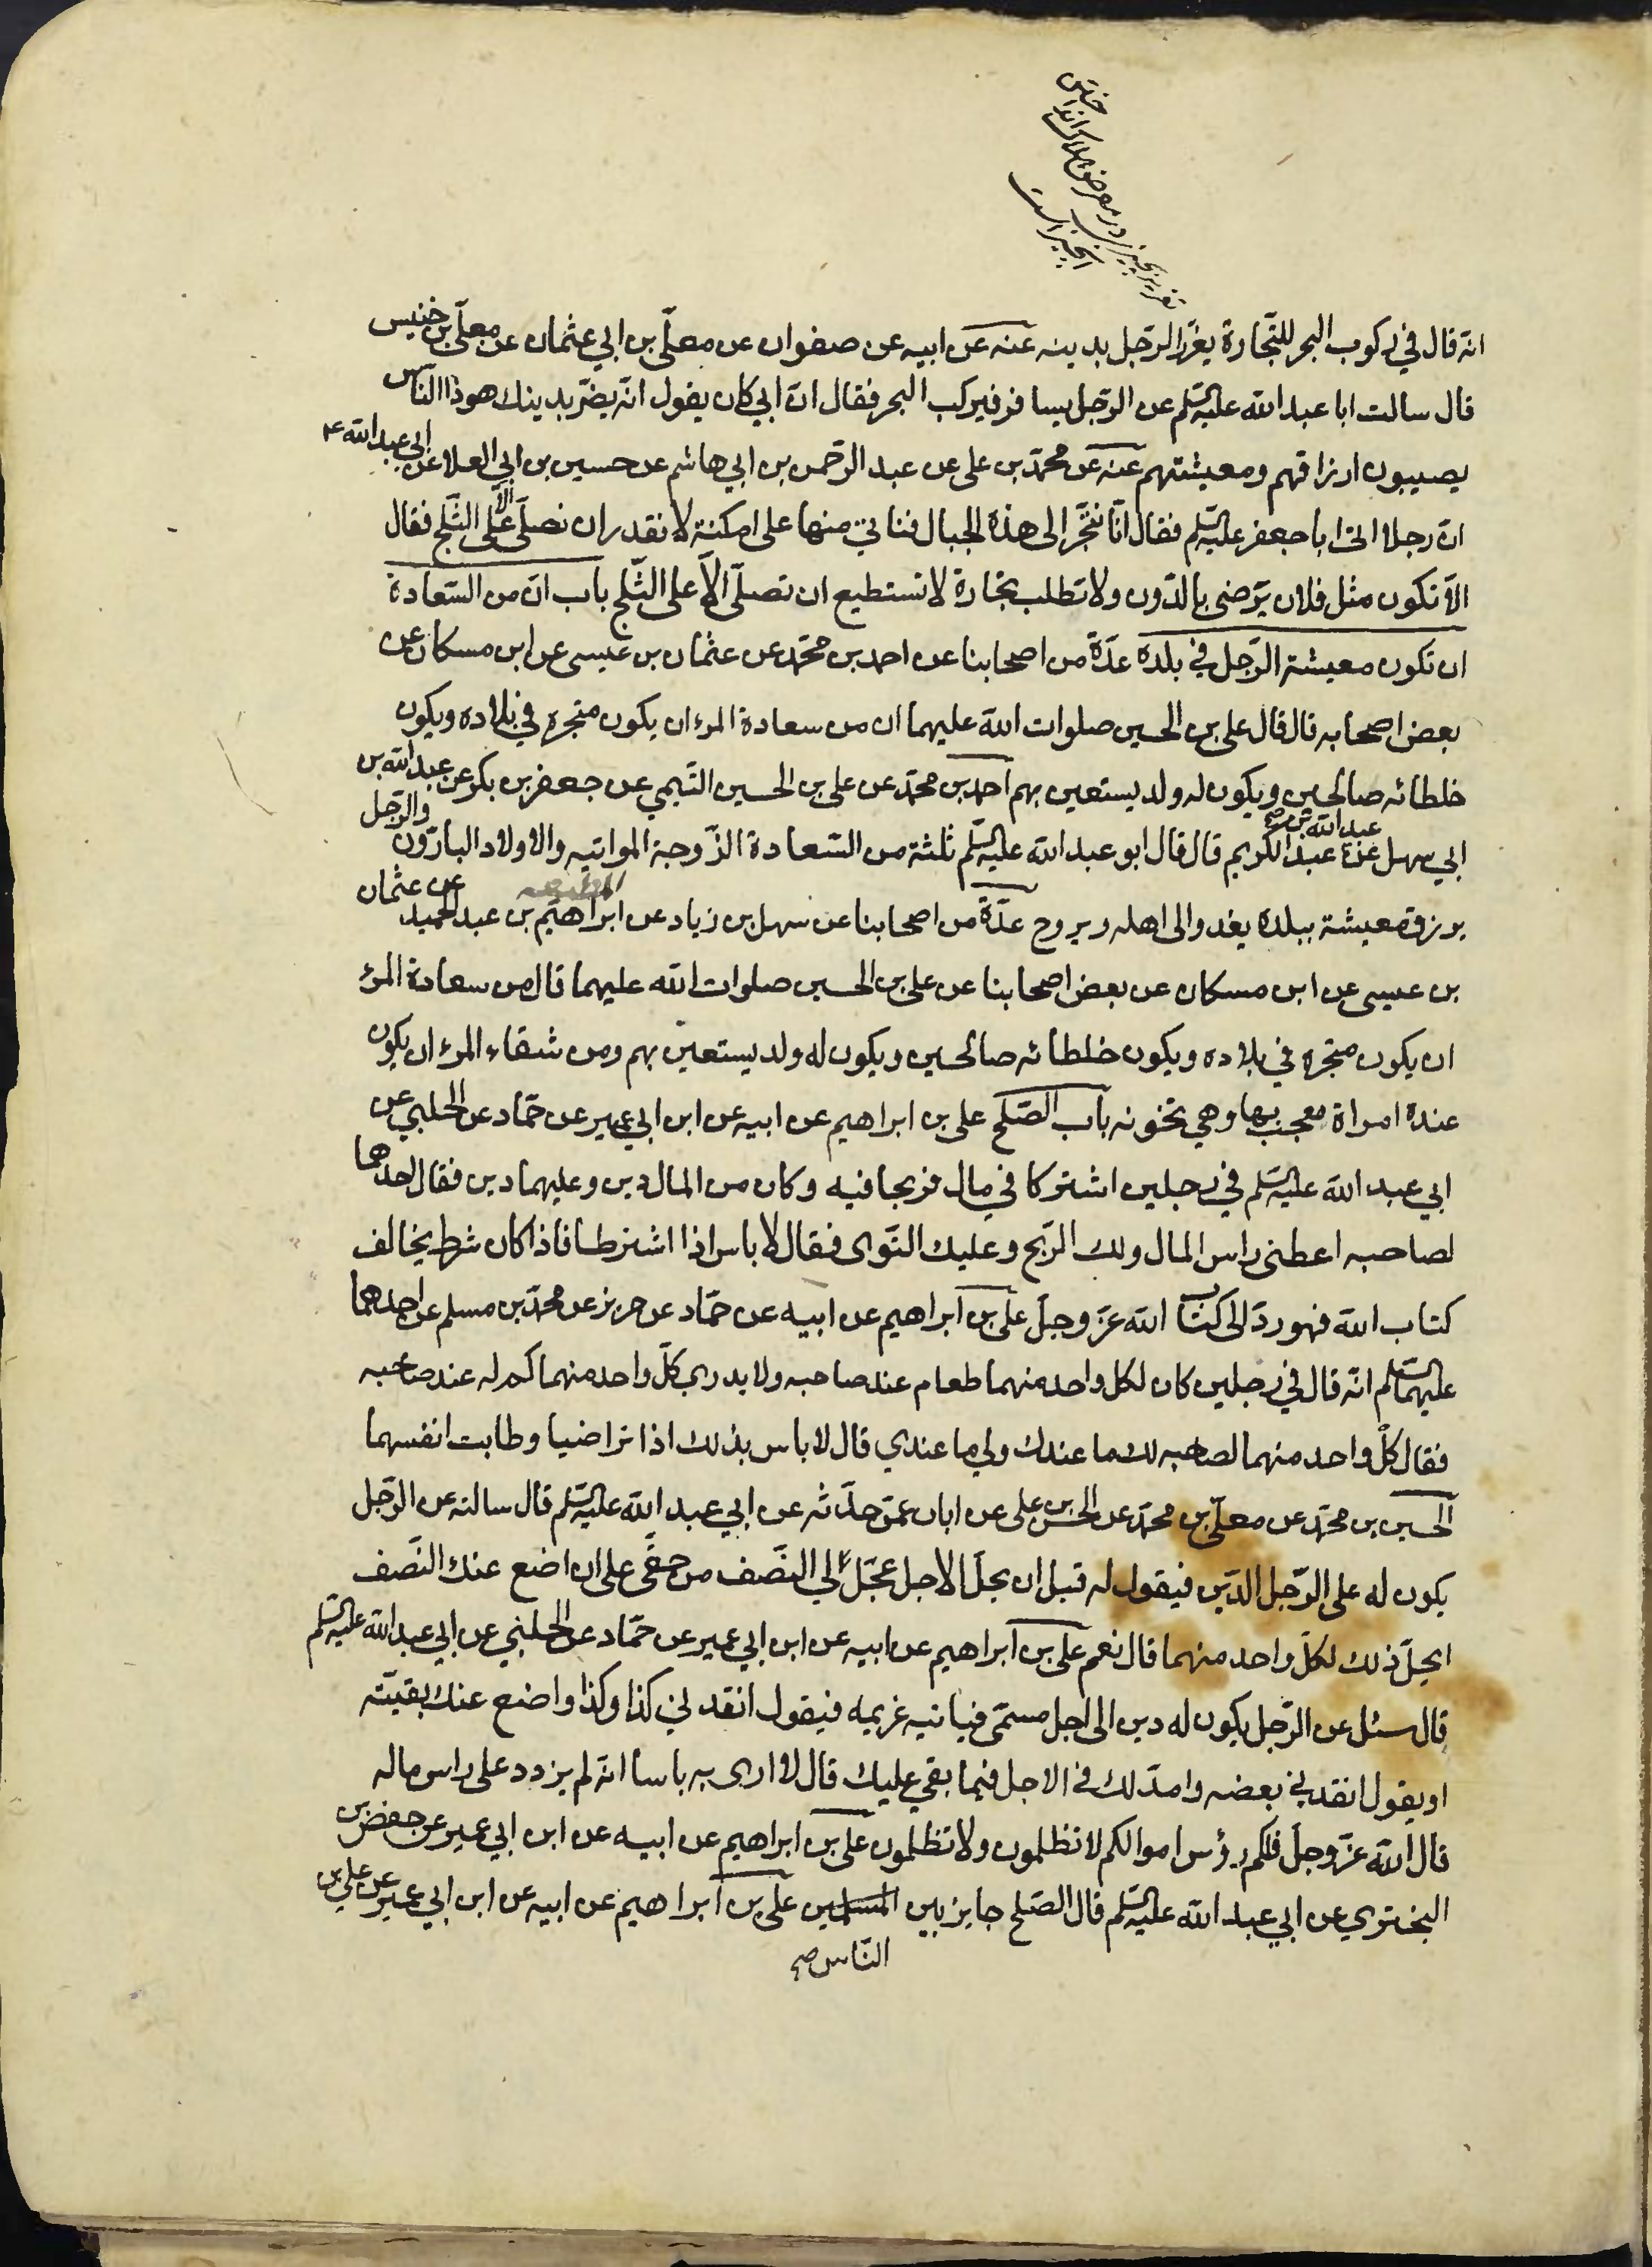 تغرير بچيزى در معرض هلاك انداختن
انچيز است
انه قال في ركوب البحر للتجارة يغرّر الرّجل بدينه عنه عن ابيه عن صفوان عن معلّى بن ابي عثمان عن معلّى بن خنيس
قال سالت ابا عبد الله عليه السّلم عن الرّجل يسافر فيركب البحر فقال انّ ابي كان يقول انّه يضرّ بدينك هوذا النّاس
يصيبون ارزاقهم ومعيشتهم عنه عن محمّد بن على عن عبد الرّحمن بن ابي هاشم عن حسين بن ابي العلا عن ابي عبد الله ع
انّ رجلا اتى ابا جعفر عليه السّلم فقال انّا نتّجر الى هذه الجبال فناتي منها على امكنة لا نقدر ان نصلّى الّا على الثّلج فقال
الّا تكون مثل فلان يرضى بالدّون ولا تطلب تجارة لا تستطيع ان تصلّى الّا على الثّلج باب انّ من السّعادة
ان تكون معيشة الرّجل في بلده عدّة من اصحابنا عن احمد بن محمّد عن عثمان بن عيسى عن ابن مسكان عن
بعض اصحابه قال قال على بن الحسين صلوات الله عليهما ان من سعادة المرء ان يكون متجره في بلاده ويكون
خلطائه صالحين ويكون له ولد يستعين بهم احمد بن محمّد عن على بن الحسين التيمي عن جعفر بن بكر عن عبد الله بن
ابي سهل عن عبد الله بن عبد الكريم قال قال ابو عبد الله عليه السّلم ثلثة من السّعادة الزّوجة المواتيه والاولاد البارّون والرّجل
يرزق معيشة ببلده يغدوالى اهله ويروح عدّة من اصحابنا عن سهل بن زياد عن ابراهيم بن عبد الحميد عن عثمان
بن عيسى عن ابن مسكان عن بعض اصحابنا عن على بن الحسين صلوات الله عليهما قال من سعادة المرء
ان يكون متجره في بلاده ويكون خلطائه صالحين ويكون له ولد يستعين بهم ومن شقاء المرء ان يكون
عنده امراة معجب بها وهي تخونه باب الصّلح على بن ابراهيم عن ابيه عن ابن ابي عمير عن حمّاد عن الحلبي عن
ابي عبد الله عليه السّلم في رجلين اشتركا في مال فربحا فيه وكان من المال دين وعليهما دين فقال احدهما
لصاحبه اعطنى راس المال ولك الرّبح وعليك التّوى فقال لا باس اذا اشترطا فاذا كان شرط يخالف
كتاب الله فهو ردّ الى كتاب الله عزّ وجلّ على بن ابراهيم عن ابيه عن حمّاد عن حريز عن محمّد بن مسلم عن احدهما
عليهما السّلم انّه قال في رجلين كان لكل واحد منهما طعام عند صاحبه ولا يدرى كلّ واحد منهما كم له عند صاحبه
فقال كلّ واحد منهما لصاحبه لك ما عندك ولي ما عندي قال لا باس بذلك اذا تراضيا وطابت انفسهما
الحسين بن محمّد عن معلّى بن محمّد عن الحسن بن على عن ابان عمّن حدّثه عن ابي عبد الله عليه السّلم قال سالته عن الرّجل
يكون له على الرّجل الدّين فيقول له قبل ان يحلّ الاجل عجّل لي النّصف من حقّى على ان اضع عنك النّصف
ايحلّ ذلك لكلّ واحد منهما قال نعم على بن ابراهيم عن ابيه عن ابن ابي عمير عن حمّاد عن الحلبي عن ابي عبد الله عليه السّلم
قال سئل عن الرّجل يكون له دين الى اجل مسمّى فياتيه غريمه فيقول انقد لي كذا وكذا واضع عنك بقيّته
او يقول انقدني بعضه وامدّ لك في الاجل فيما بقي عليك قال لا ارى به باسا انّه لم يزدد على راس ماله
قال الله عزّ وجلّ فلكم رؤس اموالكم لا تظلمون ولا تظلمون على بن ابراهيم عن ابيه عن ابن ابي عمير عن حفص بن
البختري عن ابي عبد الله عليه السّلم قال الصّلح جايز بين المسلمين على بن ابراهيم عن ابيه عن ابن ابي عمير عن على بن
النّاس صح